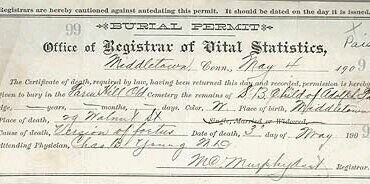 Registrars are hereby cautioned against antedating this permit. It should be dated on the day it is issued.
99
BURIAL PERMIT
Office of Registrar of Vital Statistics,
Middletown Conn., May 4 190
The Certificate of death, required by law, having been returned this day and recorded, permission is hereby
given to bury in the Farm Hill Old cemetery the remains of S. B. Child of
Age, — years, — months, — days. Color, W. Place of birth, Middletown
Place of death, 29 Walnut St Single, Married or Widowed,
Cause of death, Version of foetus Date of death, May 190
Attending Physician, Chas B Young MD
Registrar.